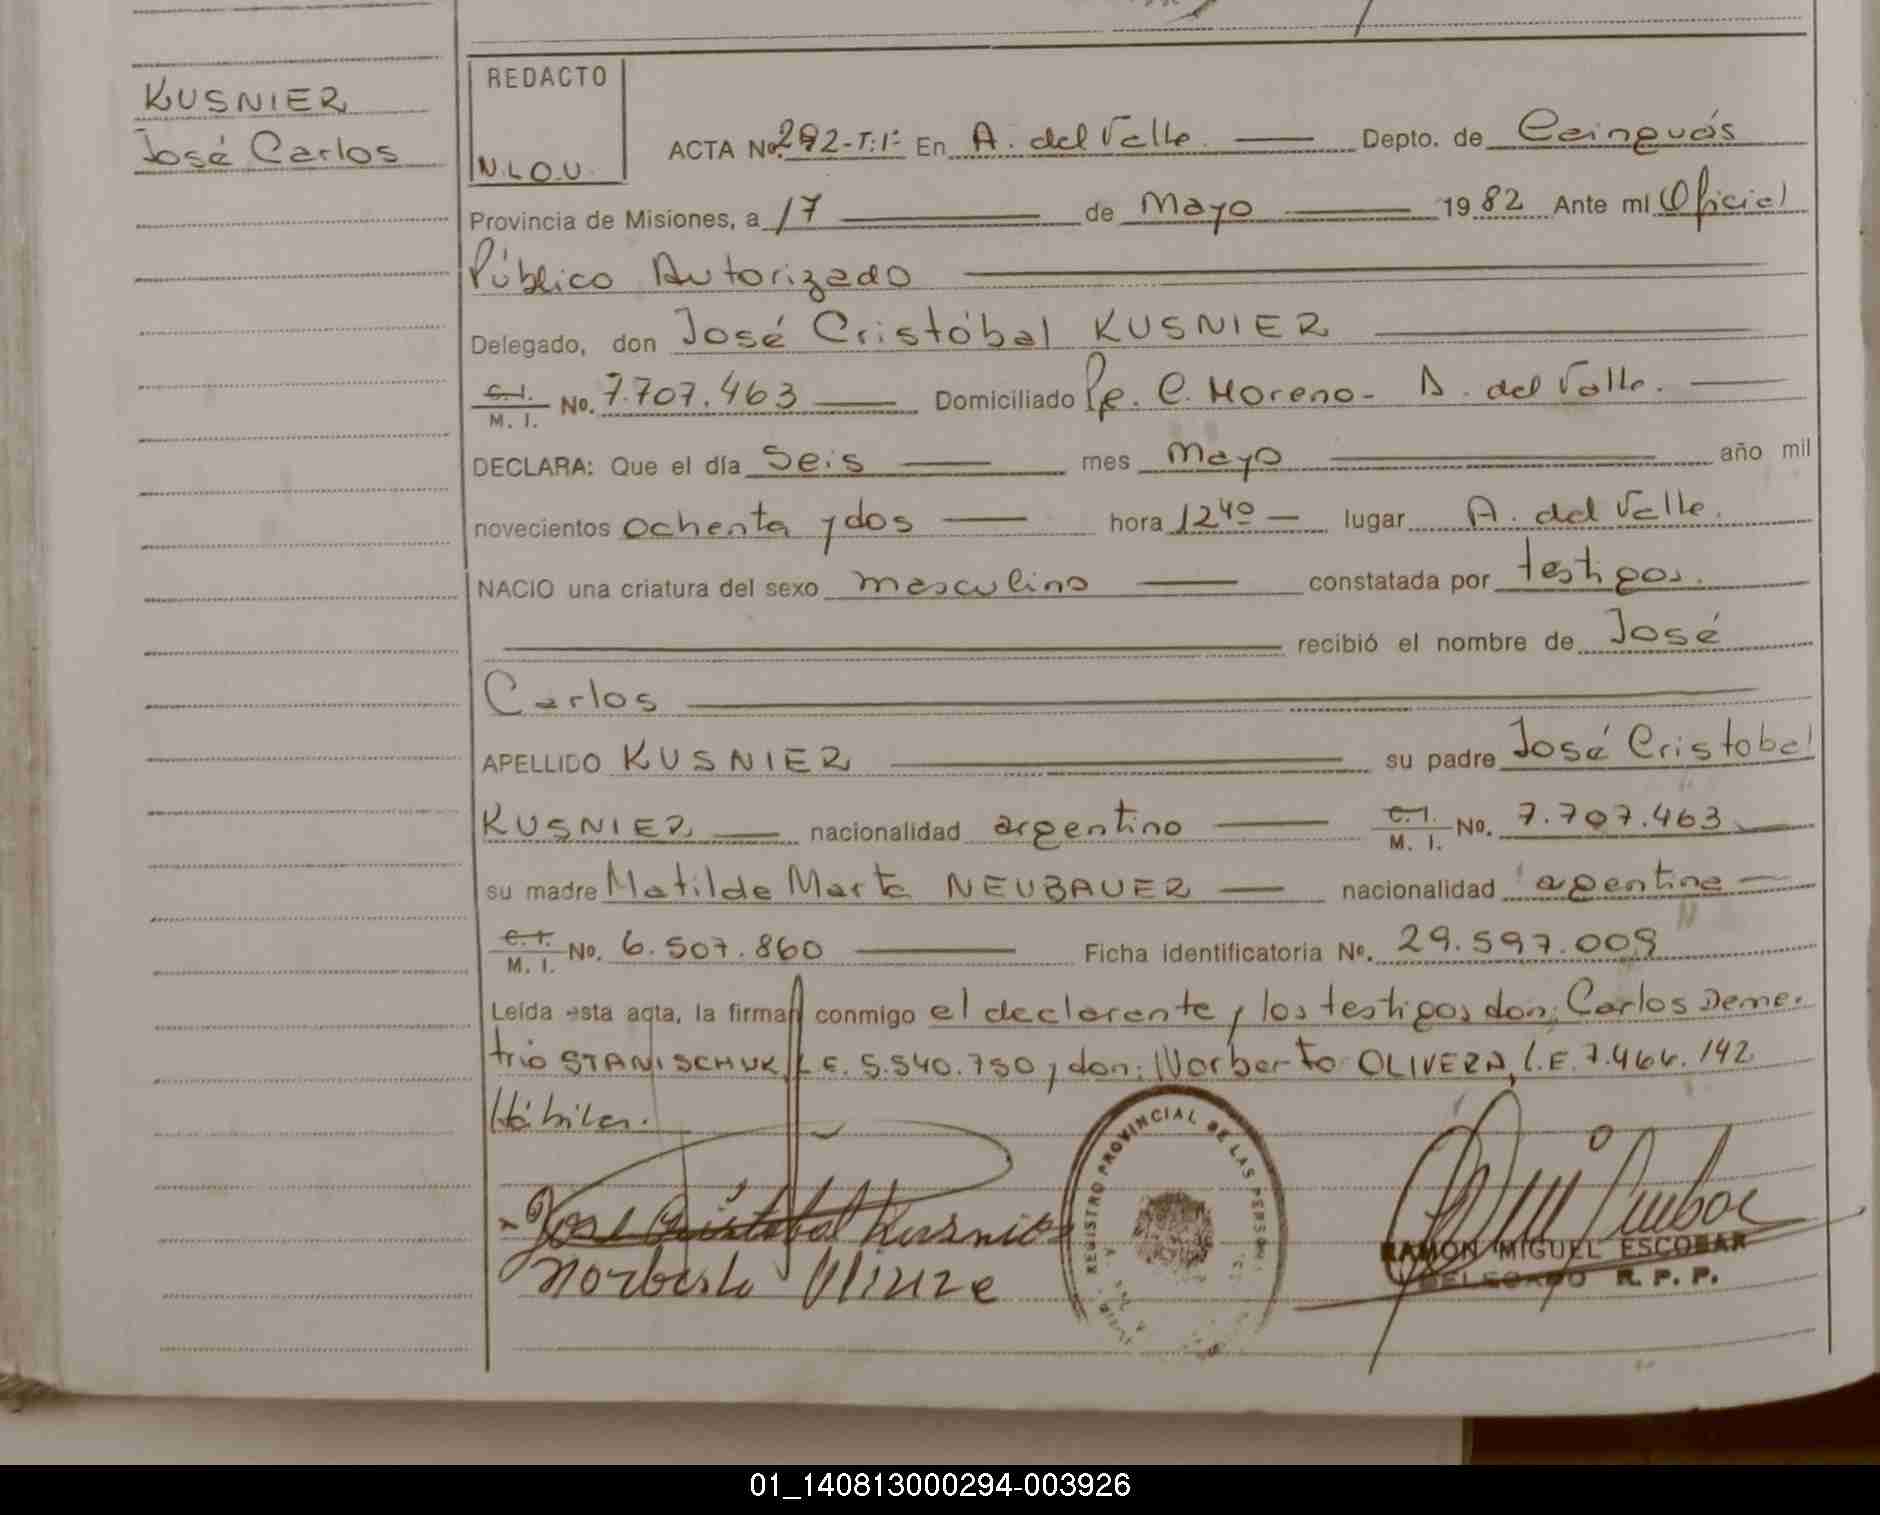 KUSNIER
José Carlos
REDACTO
N.L.O.U.
ACTA No. 292-T:1º En A. del Valle. Depto. de Cainguás
Provincia de Misiones, a 17 de Mayo 1982 Ante mí Oficial
Público Autorizado
Delegado, don José Cristóbal KUSNIER
C.I. M.I. No. 7.707.463 Domiciliado Pje. C. Moreno - A. del Valle.
DECLARA: Que el día Seis mes Mayo año mil
novecientos ochenta y dos hora 12 40 lugar A. del Valle.
NACIO una criatura del sexo masculino constatada por testigos.
recibió el nombre de José
Carlos
APELLIDO KUSNIER su padre José Cristobal
KUSNIER nacionalidad argentino C.I. M.I. No. 7.707.463
su madre Matilde Marta NEUBAUER nacionalidad argentina
C.I. M.I. No. 6.507.860 Ficha identificatoria No. 29.597.009
Leída esta acta, la firman conmigo el declarante y los testigos don: Carlos Deme-
trio STANISCHUK, L.E. 5.540.750 y don: Norberto OLIVERA, L.E. 7.466.142
Hábiles.
Jose Cristobal Kusnier
REGISTRO PROVINCIAL DE LAS PERSONAS
Norberto
RAMON MIGUEL ESCOBAR
DELEGADO R. P. P.
01_140813000294-003926